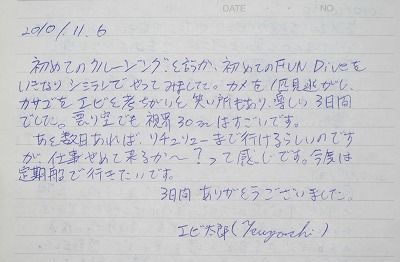 DATE NO.
2010/11.6
初めてのクルージングと言うか、初めてのFUN Diveを
いきなりシミランでやってみました。カメを1匹見逃がし、
カサゴをエビと考ちがいと笑い所もあり、楽しい3日間
でした。曇り空でも視界30mはすごいです。
あと数日あれば、リチェリューまで行けるらしいのです
が、仕事やめて来るか〜?って感じです。今度は
定期船で行きたいです。
3日間ありがとうございました。
エビ太郎